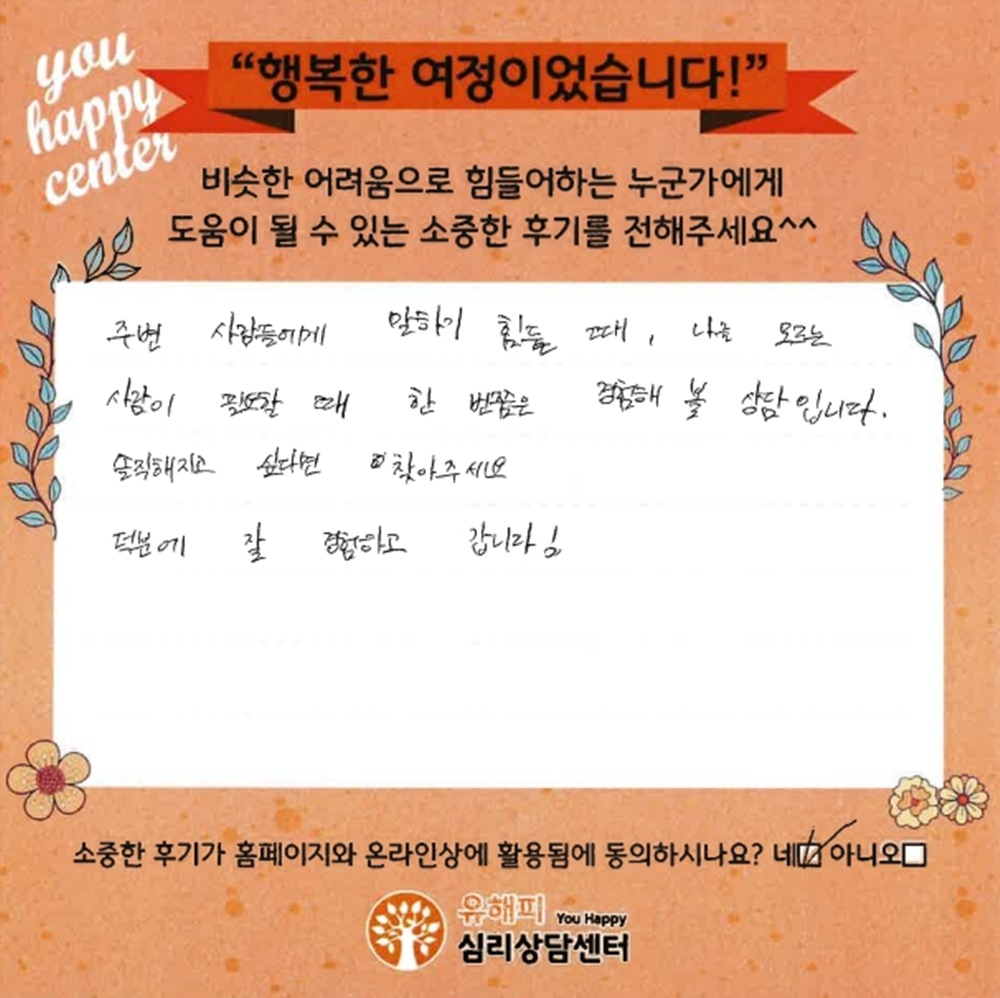 you
happy
center
“행복한 여정이었습니다!”
비슷한 어려움으로 힘들어하는 누군가에게
도움이 될 수 있는 소중한 후기를 전해주세요^^
주변 사람들에게 말하기 힘들 때, 나를 모르는
사람이 필요할 때 한 번쯤은 경험해 볼 상담입니다.
솔직해지고 싶다면 찾아주세요
덕분에 잘 경험하고 갑니다
소중한 후기가 홈페이지와 온라인상에 활용됨에 동의하시나요? 네☑ 아니오☐
유해피 You Happy
심리상담센터